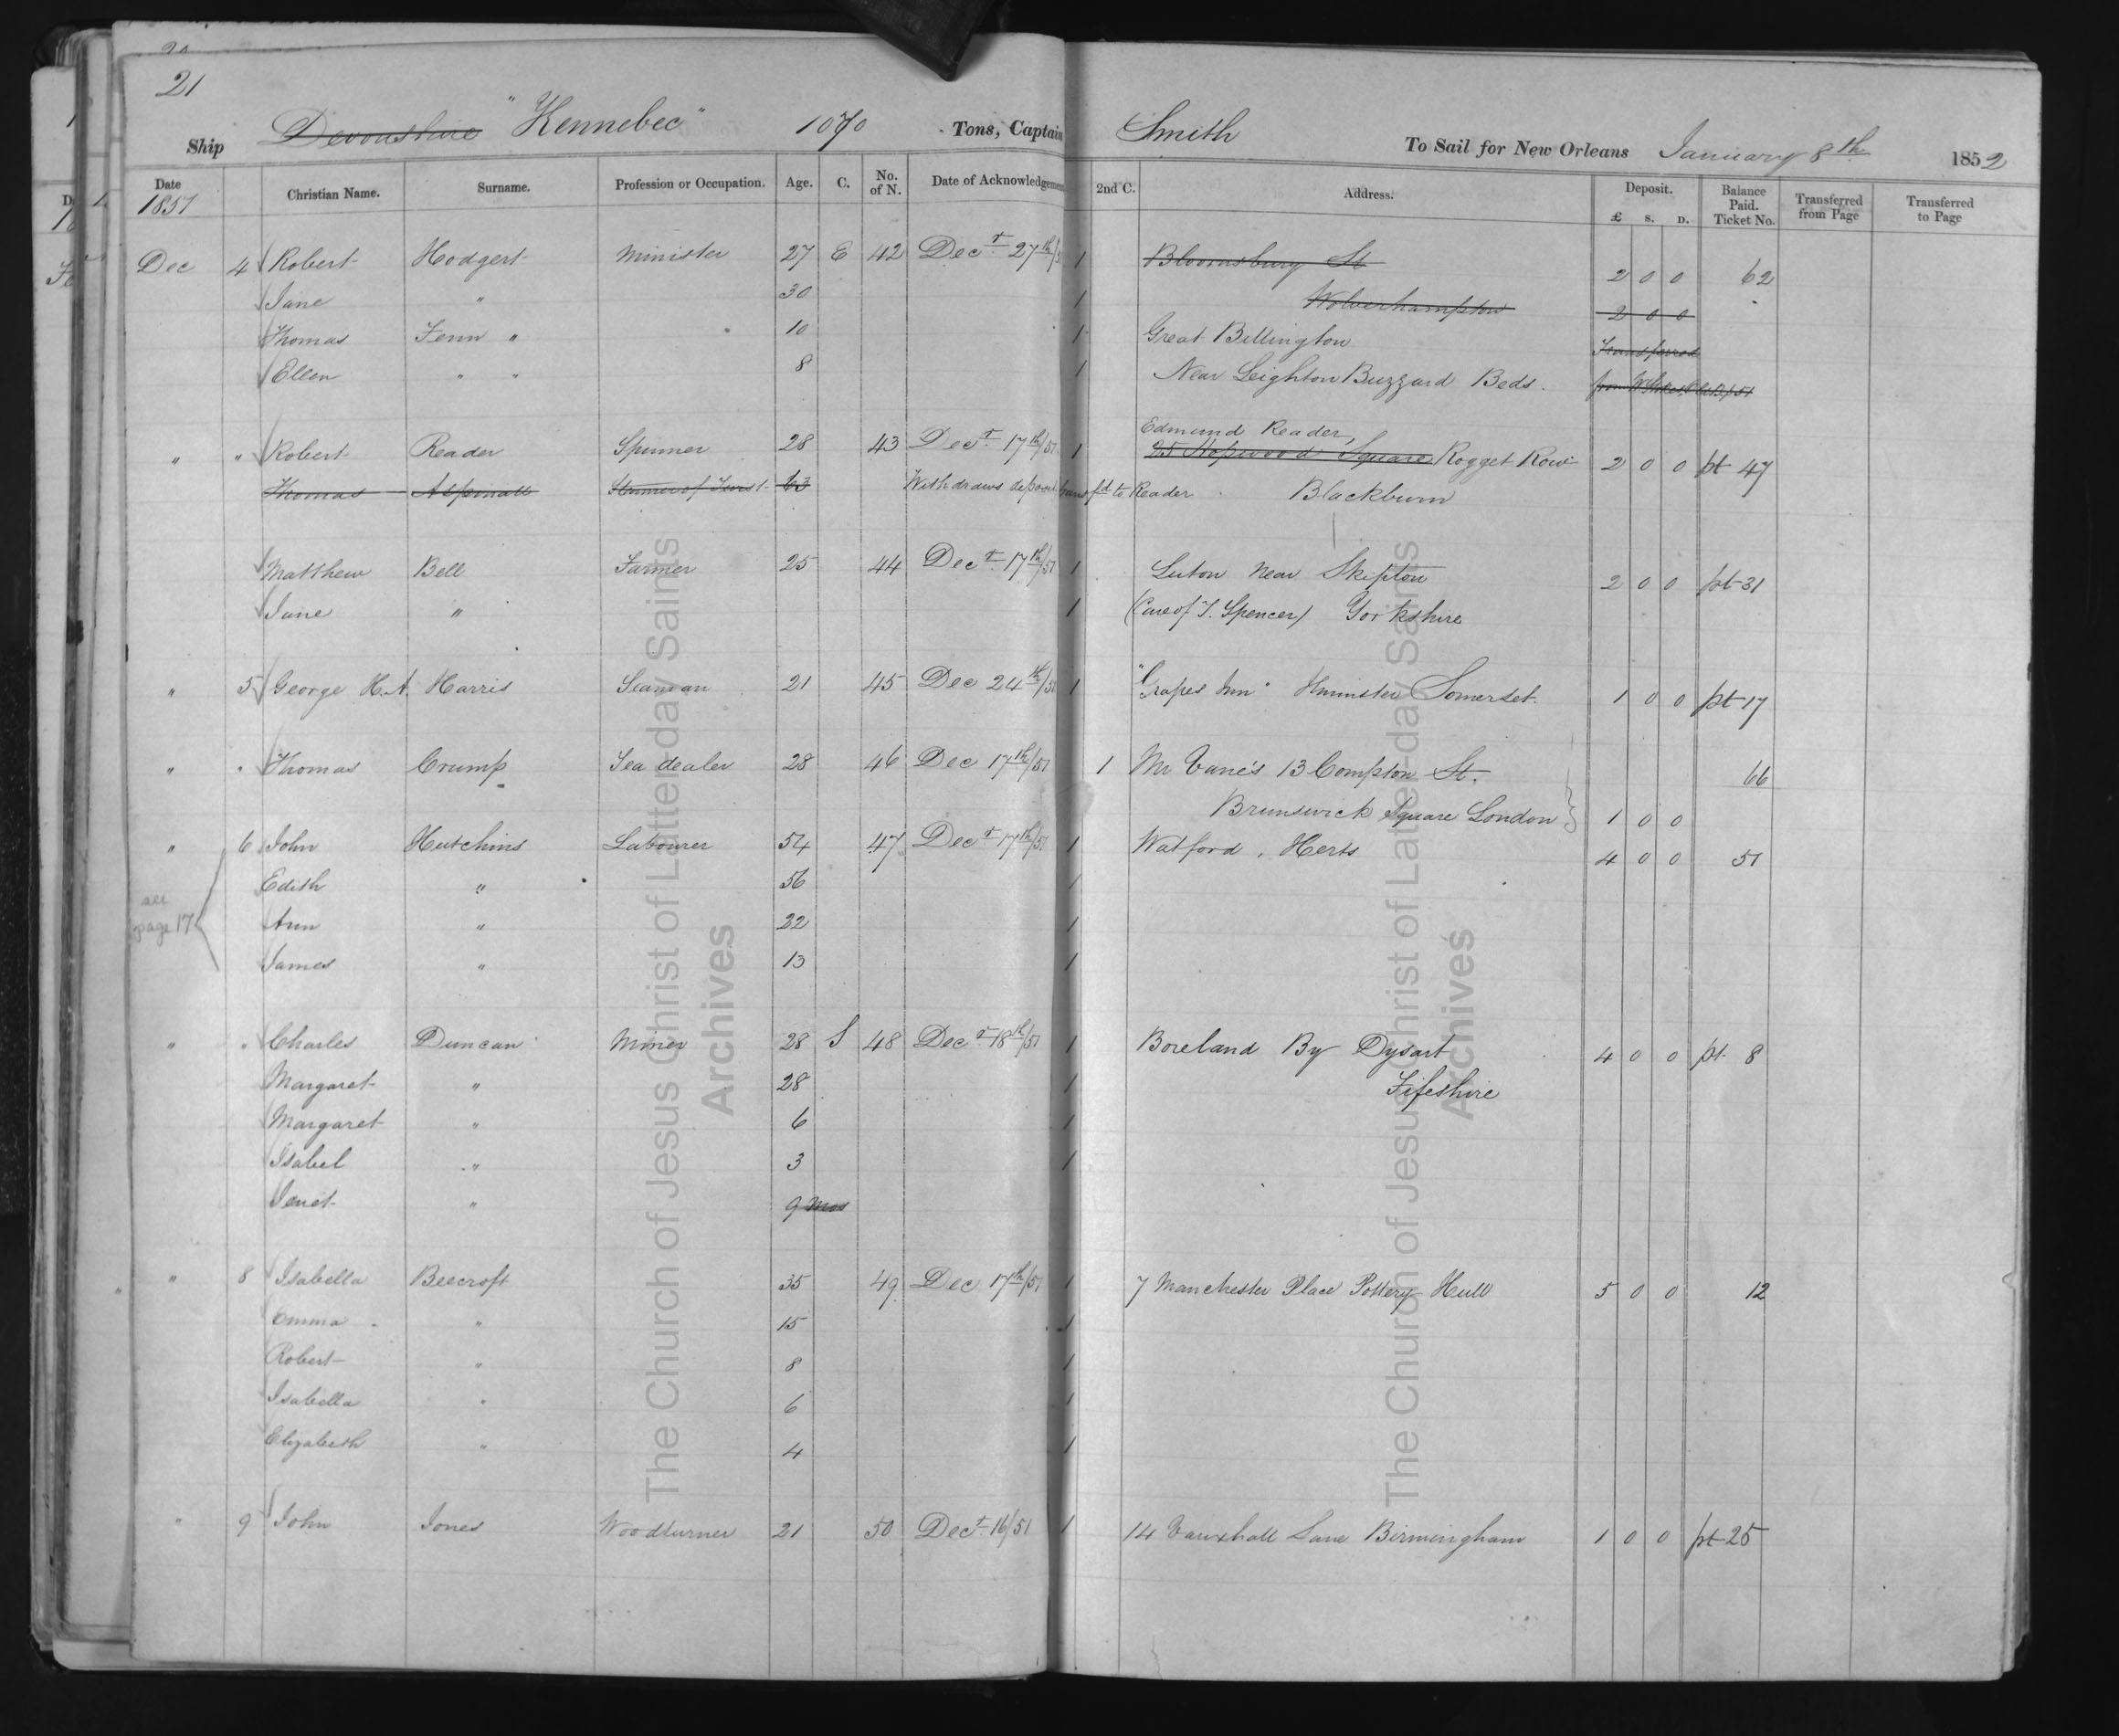 21
Ship Devonshire "Kennebec" 1070 Tons, Captain Smith To Sail for New Orleans January 8th 1852
Date 1851 Christian Name. Surname. Profession or Occupation. Age. C. No. of N. Date of Acknowledgement 2nd C. Address. Deposit. £ S. D. Balance Paid. Ticket No. Transferred from Page Transferred to Page
Dec 4 Robert Hodgert Minister 27 E 42 Decr 27th/51 1 Bloomsbury St 2 0 0 62
Jane " 30 1 Wolverhampton 2 0 0
Thomas Fenn " 10 1 Great Billington Transferred
Ellen " " 8 1 Near Leighton Buzzard Beds. from
Edmund Reader,
" " Robert Reader Spinner 28 43 Decr 17th/51 1 25 Hopwood Square Rogget Row 2 0 0 pt 47
Thomas Aspinall 63 Withdraws deposit transfd to Reader Blackburn
Matthew Bell Farmer 25 44 Decr 17th/51 1 Luton Near Skipton 2 0 0 pt 31
Jane " 1 (Care of T. Spencer) Yorkshire
" 5 George H. A. Harris Seaman 21 45 Dec 24th/51 1 "Grapes Inn" Ilminster Somerset. 1 0 0 pt 17
" " Thomas Crump Tea dealer 28 46 Dec 17th/51 1 Mr Vane's 13 Compton St. 66
Brunswick Square London } 1 0 0
" 6 John Hutchins Labourer 54 47 Decr 17th/51 1 Watford, Herts 4 0 0 51
Edith " 56 1
see page 17 Ann " 22 1
James " 13 1
" " Charles Duncan Miner 28 S 48 Decr 18th/51 1 Boreland By Dysart 4 0 0 pt 8
Margaret " 28 1 Fifeshire
Margaret " 6 1
Isabel " 3 1
Janet " 9 mos
" 8 Isabella Beecroft 35 49 Dec 17th/51 1 7 Manchester Place Pottery Hull 5 0 0 12
Emma " 15 1
Robert " 8 1
Isabella " 6 1
Elizabeth " 4 1
" 9 John Jones Woodturner 21 50 Decr 16/51 1 14 Vauxhall Lane Birmingham 1 0 0 pt 25
The Church of Jesus Christ of Latter-day Saints
Archives
The Church of Jesus Christ of Latter-day Saints
Archives